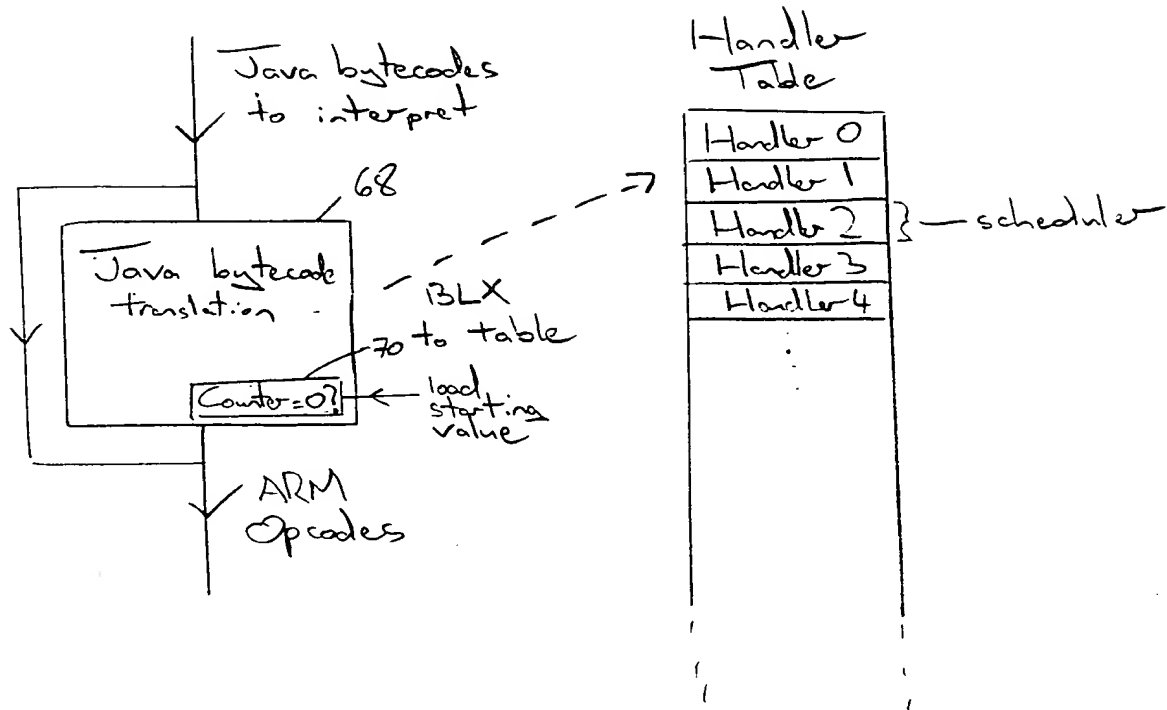 Java bytecodes
to interpret
68
Java bytecode
translation
BLX
to table
70
Counter=0?
load
starting
value
ARM
Opcodes
Handler
Table
Handler 0
Handler 1
Handler 2
Handler 3
Handler 4
scheduler